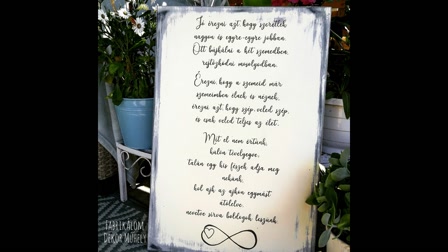 Jó érezni azt hogy szeretlek
nagyon és egyre-egyre jobban.
Ott bújkálni a két szemedben,
rejtőzködni mosolyodban.
Érezni, hogy a szemeid már
szemeimben élnek és néznek,
érezni azt hogy szép, veled szép,
és csak veled teljes az élet.
Mit el nem értünk,
balón tévelyegve,
talán egy kis fészek adja meg
nekünk,
hol ajk az ajkon egymást
átölelve
nevetve sírva boldogok leszünk.
FABLIKALOM
DEKOR MŰHELY